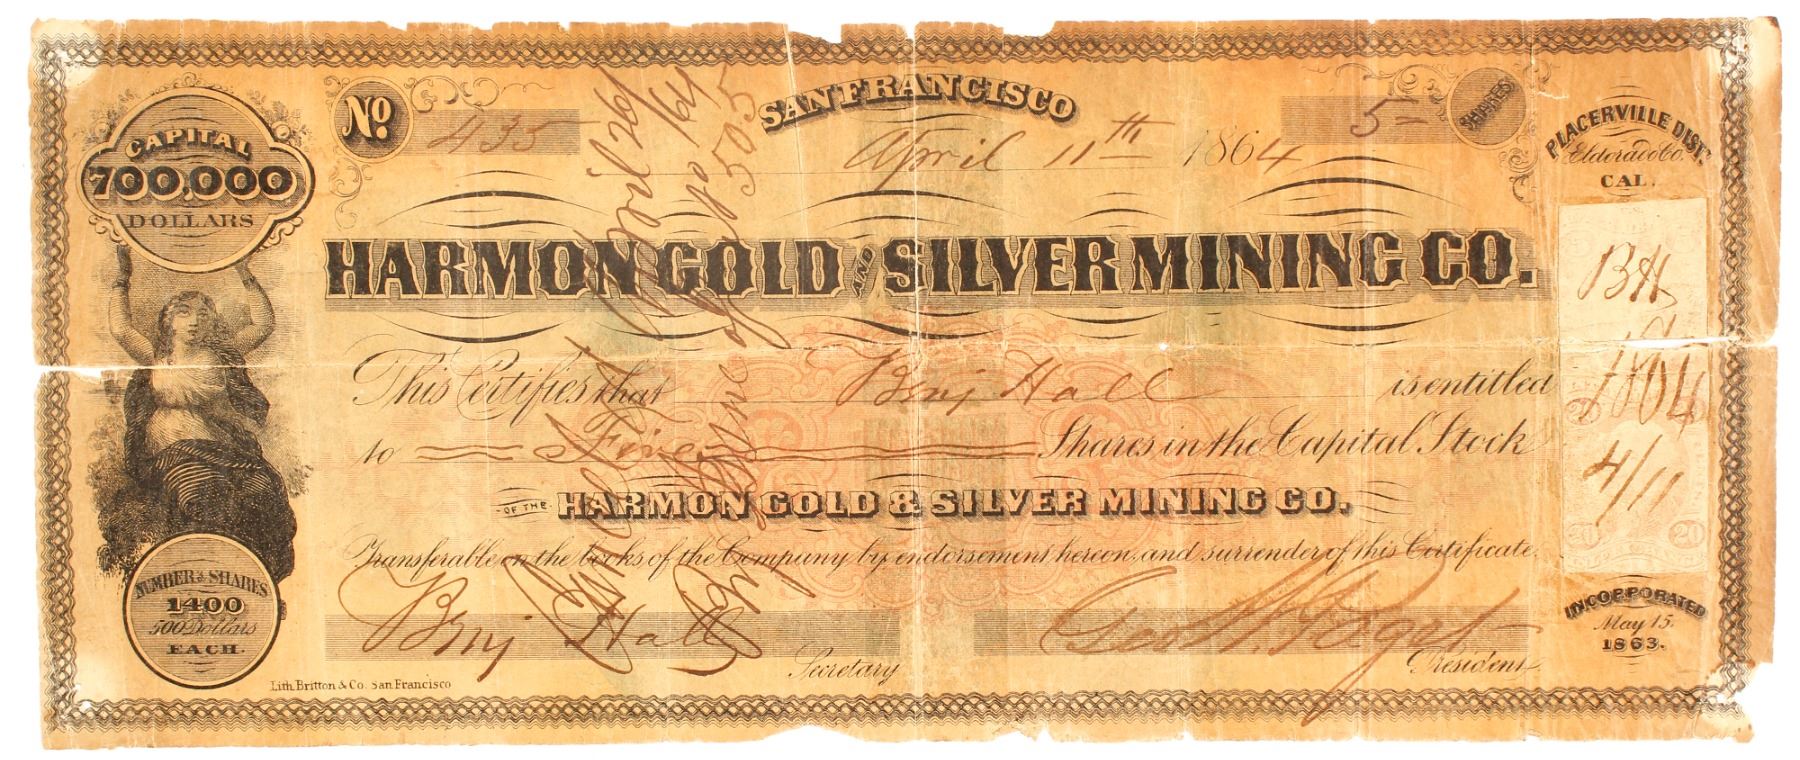 CAPITAL
700,000
DOLLARS
No.
435
SAN FRANCISCO
April 11th 1864
5=
SHARES
PLACERVILLE DIST.
Eldorado Co.
CAL.
HARMON GOLD AND SILVER MINING CO.
This Certifies that Benj Hall is entitled
to Five Shares in the Capital Stock
OF THE HARMON GOLD & SILVER MINING CO.
Transferable on the books of the Company by endorsement hereon, and surrender of this Certificate.
Benj Hall
Secretary
President
NUMBER OF SHARES
1400
500 Dollars
EACH.
Lith. Britton & Co. San Francisco
BH
1864
4/11
20
20
INCORPORATED
May 15.
1863.
April 26/64
505